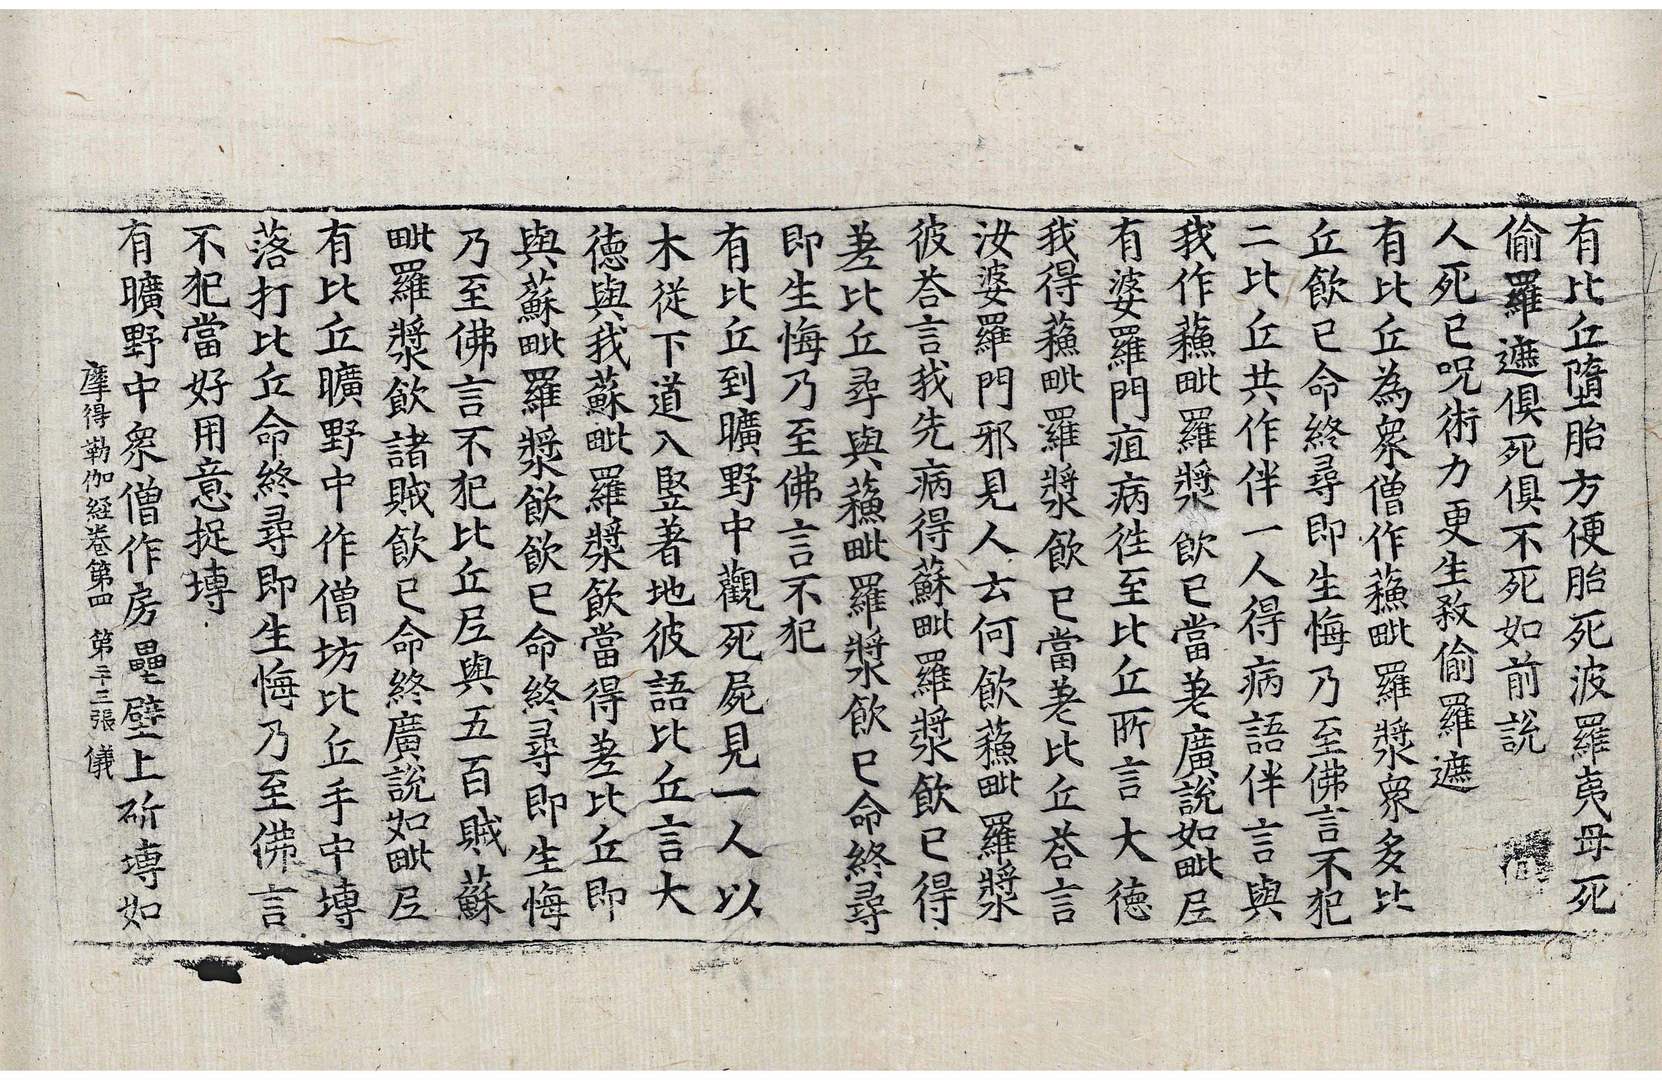 有比丘墮胎方便胎死波羅夷母死
偷羅遮俱死俱不死如前說
人死已呪術力更生敎偷羅遮
有比丘為衆僧作蘓毗羅漿衆多比
丘飮已命終尋即生悔乃至佛言不犯
二比丘共作伴一人得病語伴言與
我作蘓毗羅漿飮已當差廣說如毗尼
有婆羅門疽病徃至比丘所言大德
我得蘓毗羅漿飮已當差比丘荅言
汝婆羅門邪見人去何飮蘓毗羅漿
彼荅言我先病得蘇毗羅漿飮已得
差比丘尋與蘓毗羅漿飮已命終尋
即生悔乃至佛言不犯
有比丘到曠野中觀死屍見一人以
木從下道入竪著地彼語比丘言大
德與我蘇毗羅漿飮當得差比丘即
與蘇毗羅漿飮飮已命終尋即生悔
乃至佛言不犯比丘尼與五百賊蘇
毗羅漿飮諸賊飮已命終廣說如毗尼
有比丘曠野中作僧坊比丘手中塼
落打比丘命終尋即生悔乃至佛言
不犯當好用意捉塼
有曠野中衆僧作房壘壁上斫塼如
摩得勒伽経卷第四 第二十三張 儀